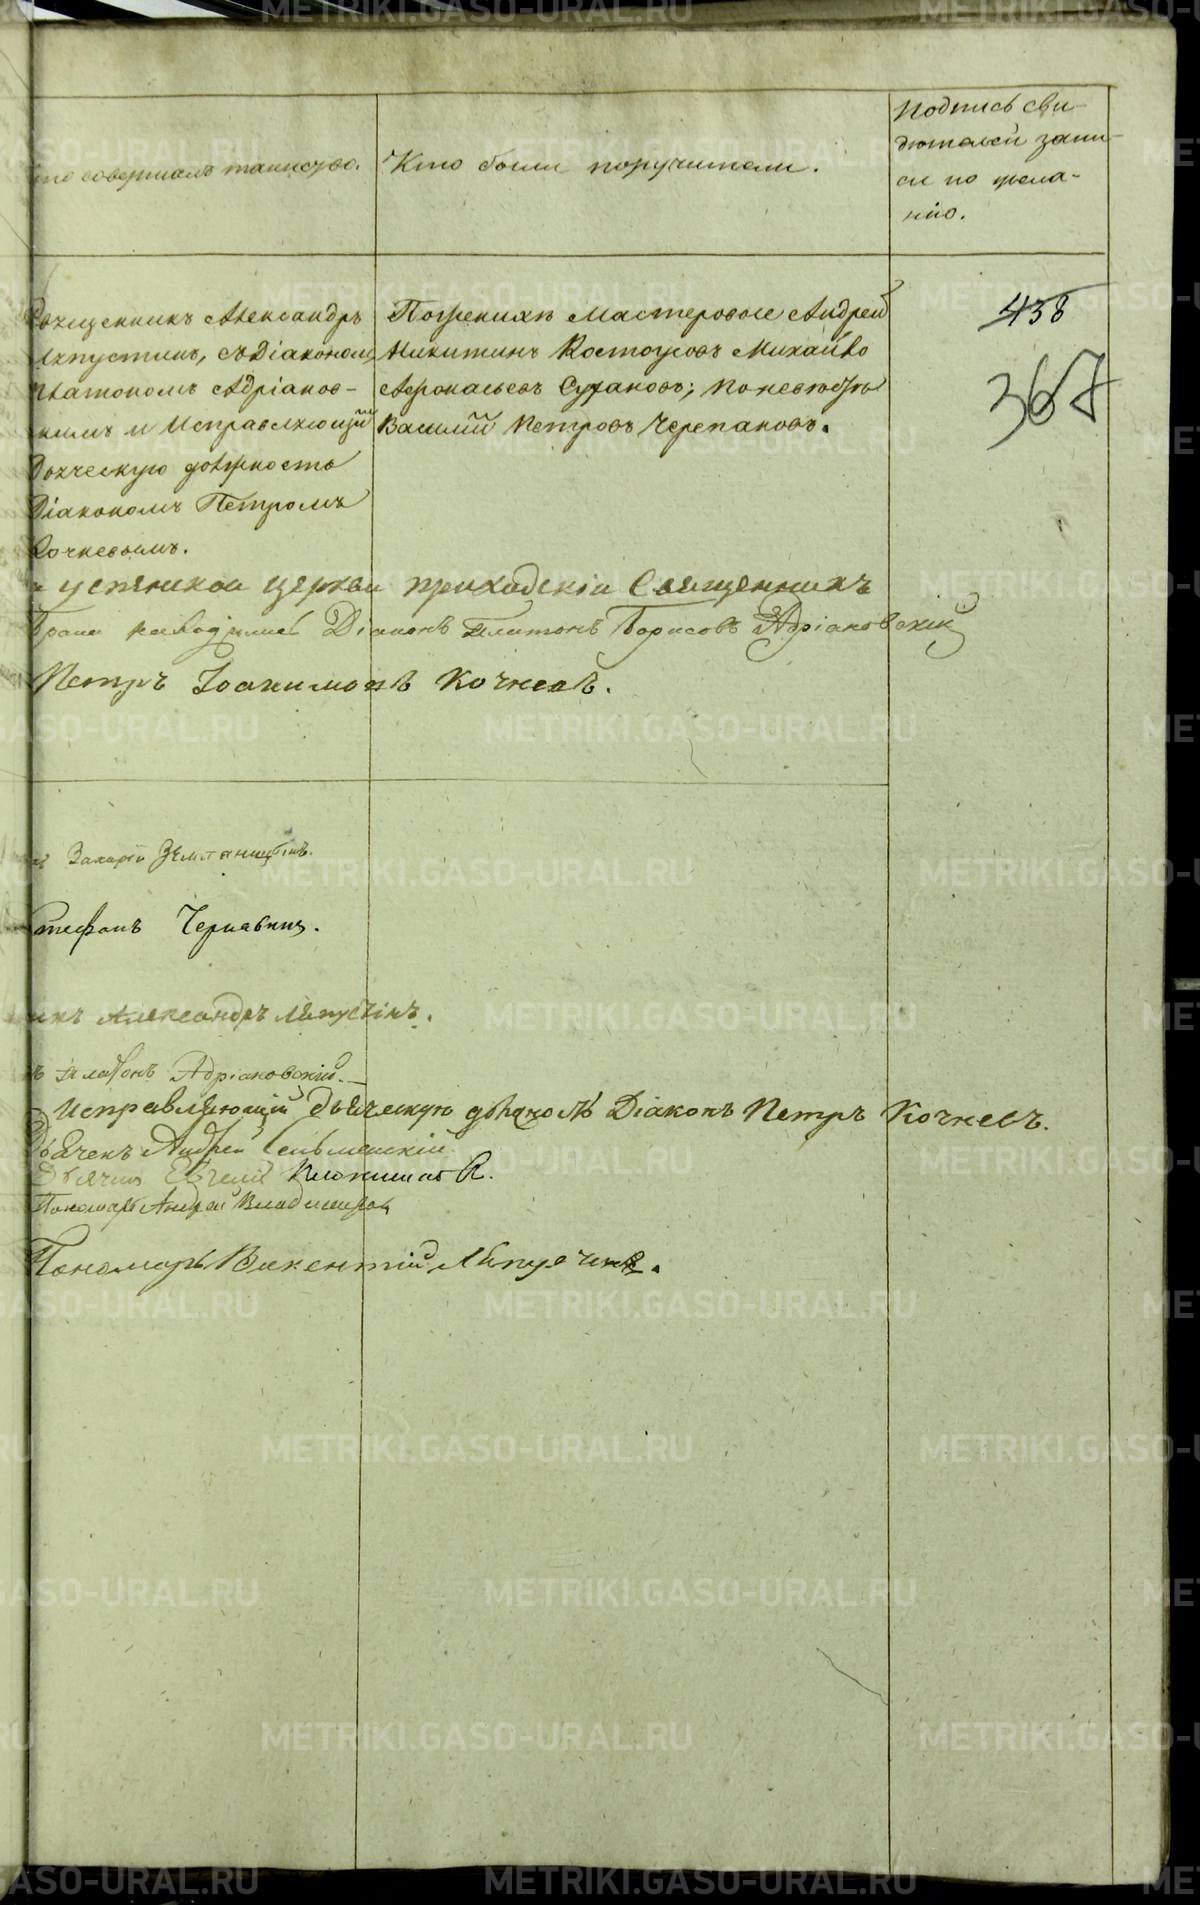 то совершалъ таинство.
Кто были поручители.
Подпись сви-
дѣтелей запи-
си по жела-
нію.
438
367
Священникъ Александръ
Ляпустинъ, съ Діакономъ
Платономъ Адріанов-
скимъ и Исправляющій
Дьяческую должность
Діакономъ Петромъ
Кочневымъ.
По женихѣ Мастеровые Андрей
Никитинъ Костоусовъ Михайло
Афонасьевъ Сушновъ; По невѣстѣ
Василій Петровъ Черепановъ.
успенской церкви приходскій Священникъ
Діаконъ Платонъ Борисовъ Адріановскій
Петръ Іоакимовъ Кочневъ.
Захарій Земляницынъ.
Стефанъ Чернавинъ.
икъ Александръ Ляпустинъ.
ъ Платонъ Адріановскій.
Исправляющій дьяческую должность Діаконъ Петръ Кочневъ.
Дьячекъ Андрей Сельменскій
Дьячекъ Евгеній
Пономарь Андрей Владимировъ
Пономарь Викентій Ляпустинъ.
METRIKI.GASO-URAL.RU